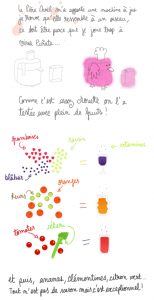 Le Père Noël m'a apporté une machine à jus
je trouve qu'elle ressemble à un oiseau,
ça doit être parce que je joue trop à
Virus Pirate...
Comme c'est assez chouette on l'a
testée avec plein de fruits !
framboises
raisin
vitamines
blâbes
oranges
kiwis
tomates
céleri
et puis, ananas, clémentines, citron vert...
Tout n'est pas de saison mais c'est exceptionnel !